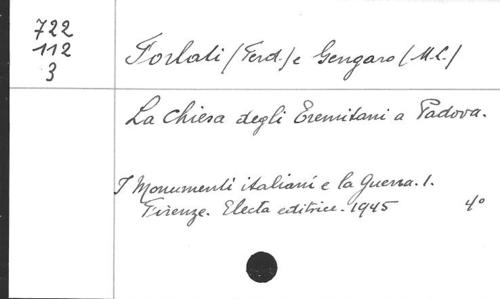 722
112
3
Forlati (Ferd.) e Gengaro (M.L.)
La Chiesa degli Eremitani a Padova.
I Monumenti italiani e la Guerra. 1.
Firenze. Electa editrice. 1945 4°